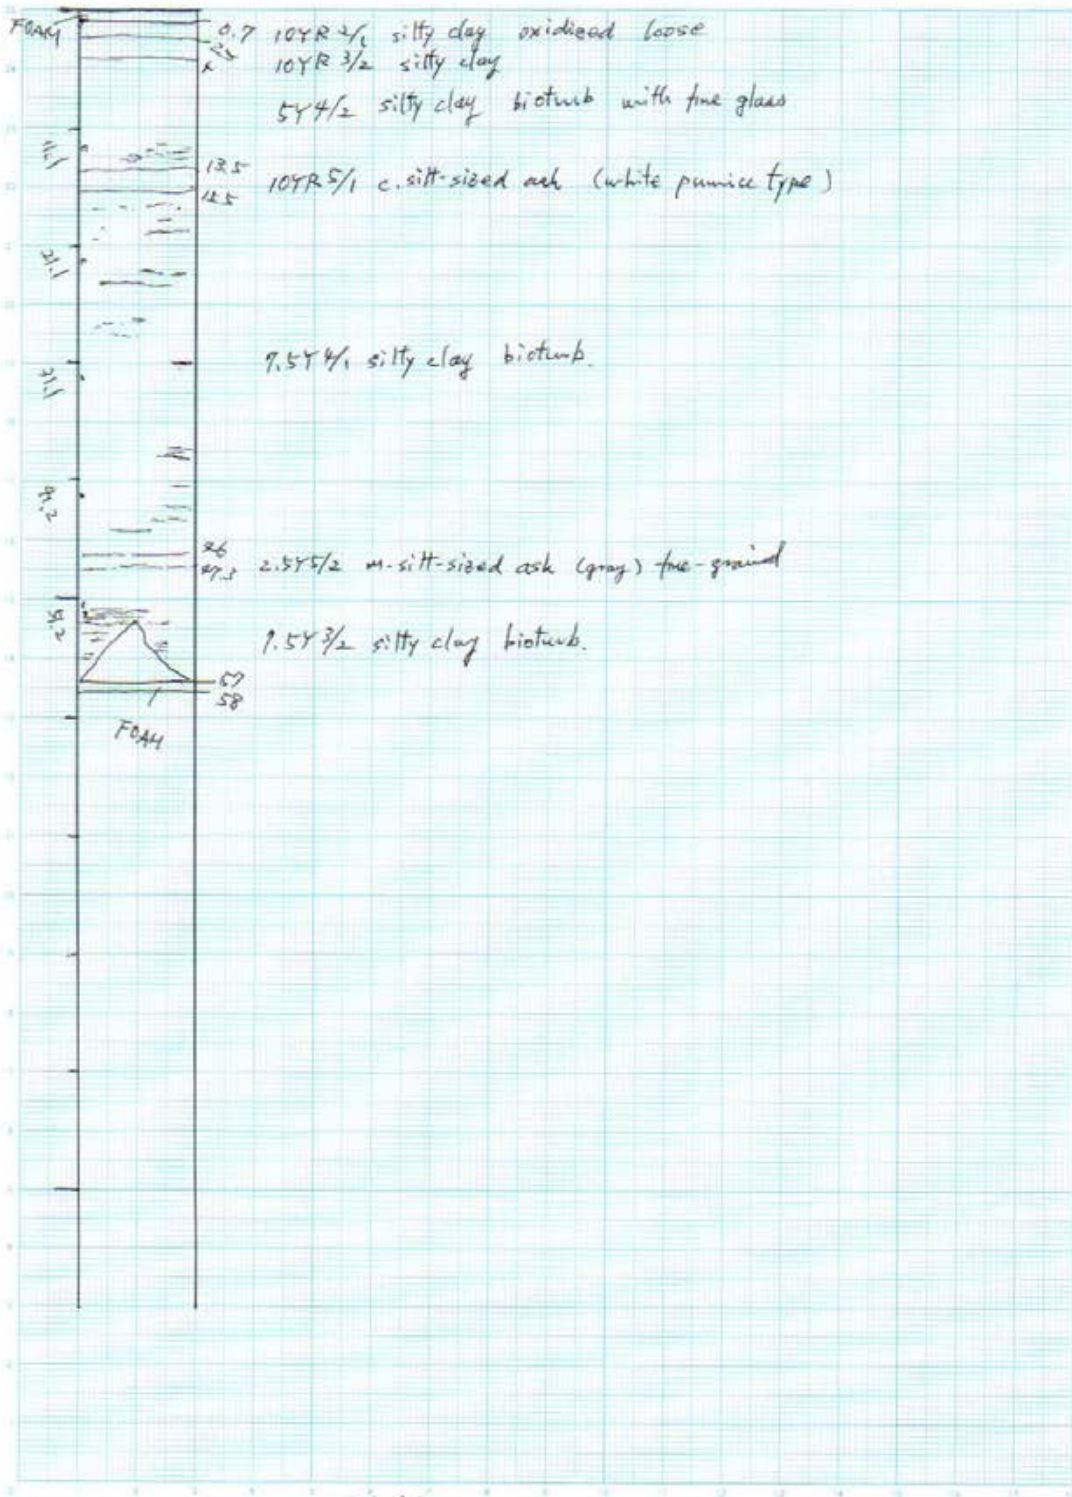 FOAM
0.7 10YR 2/1 silty clay oxidized loose
2.5 10YR 3/2 silty clay
5Y4/2 silty clay bioturb with fine glass
11.1
13.5
10YR 5/1 c. silt-sized ash (white pumice type)
15.5
21.1
7.5Y 4/1 silty clay bioturb.
31.1
46
47.3 2.5Y5/2 m-silt-sized ash (gray) fine-graind
7.5Y 3/2 silty clay bioturb.
57
58
FOAM